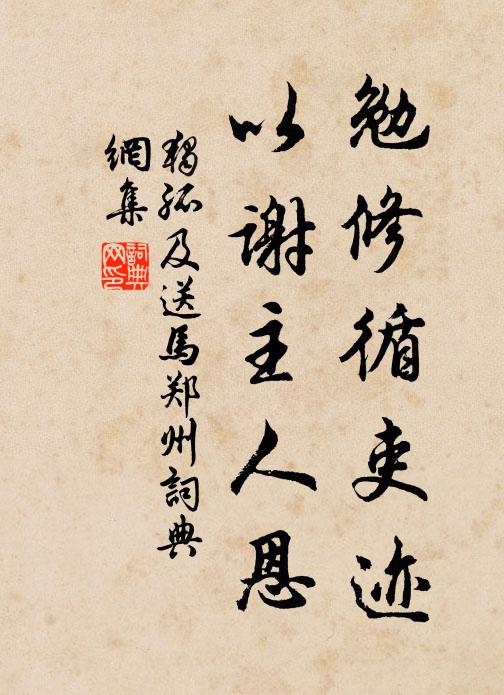 勉修循吏迹
以謝主人恩
獨孤及送馬郑州詞典
網集
詞典網印